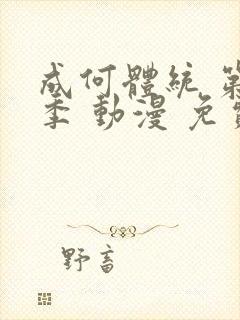 成何體統 第
季 動漫 免
野畜